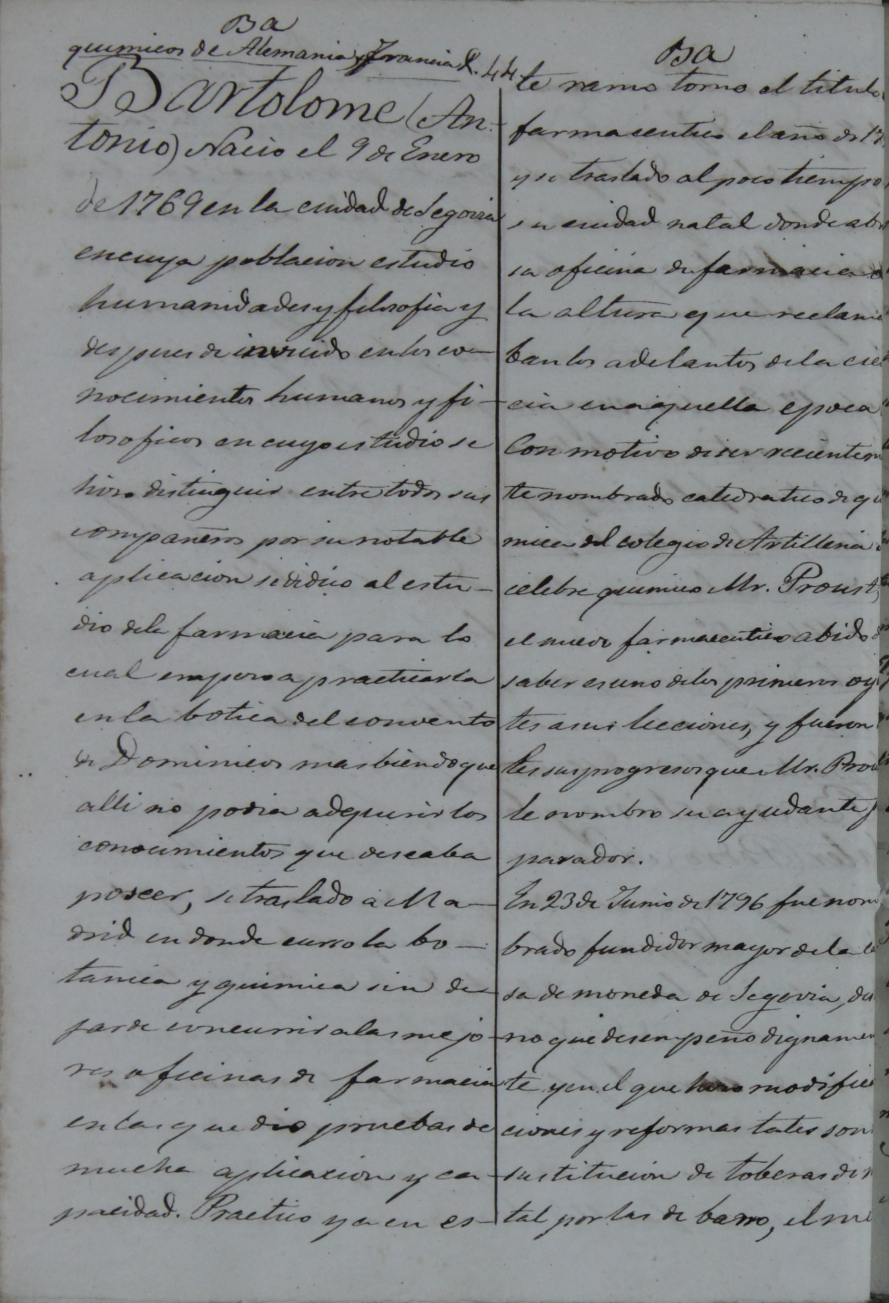 Ba
quimicos de Alemania y Francia R. 44
Bartolome (An-
tonio) Nacio el 9 de Enero
de 1769 en la ciudad de Segovia
en cuya poblacion estudio
humanidades y filosofia y
despues de inruido en los co-
nocimientos humanos y fi-
losoficos en cuyo estudio se
hiso distinguir entre todos sus
compañeros por su notable
aplicacion se dedico al estu-
dio dela farmacia para lo
cual empeso a practicarla
en la botica del convento
de Dominicos mas biendo que
alli no podia adquirir los
conocimientos que deseaba
poseer, se traslado a Ma-
drid en donde curso la bo-
tanica y quimica sin de-
jar de concurrir a las mejo-
res oficinas de farmacia
en las que dio pruebas de
mucha aplicacion y ca-
pacidad. Practico ya en es-
Ba
te ramo tomo el titulo
farmaceutico el año de 17
y se traslado al poco tiempo
su ciudad natal donde ab
sa oficina de farmacia
la altura que reclama
ban los adelantos de la cie
cia en aquella epoca
Con motivo de ser recientem
te nombrado catedratico de q
mica del colegio de Artilleria
celebre quimico Mr. Proust
el nuevo farmaceutico abido
saber es uno de los primeros oy
tes a sus lecciones, y fueron
les sus progresos que Mr. Prou
le nombro su ayudante p
parador.
En 23 de Junio de 1796 fue nom
brado fundidor mayor de la c
sa de moneda de Segovia, des
no que desempeño dignamen
te y en el que hiso modifica
ciones y reformas tales son
sustitucion de toberas de m
tal por las de barro, el me